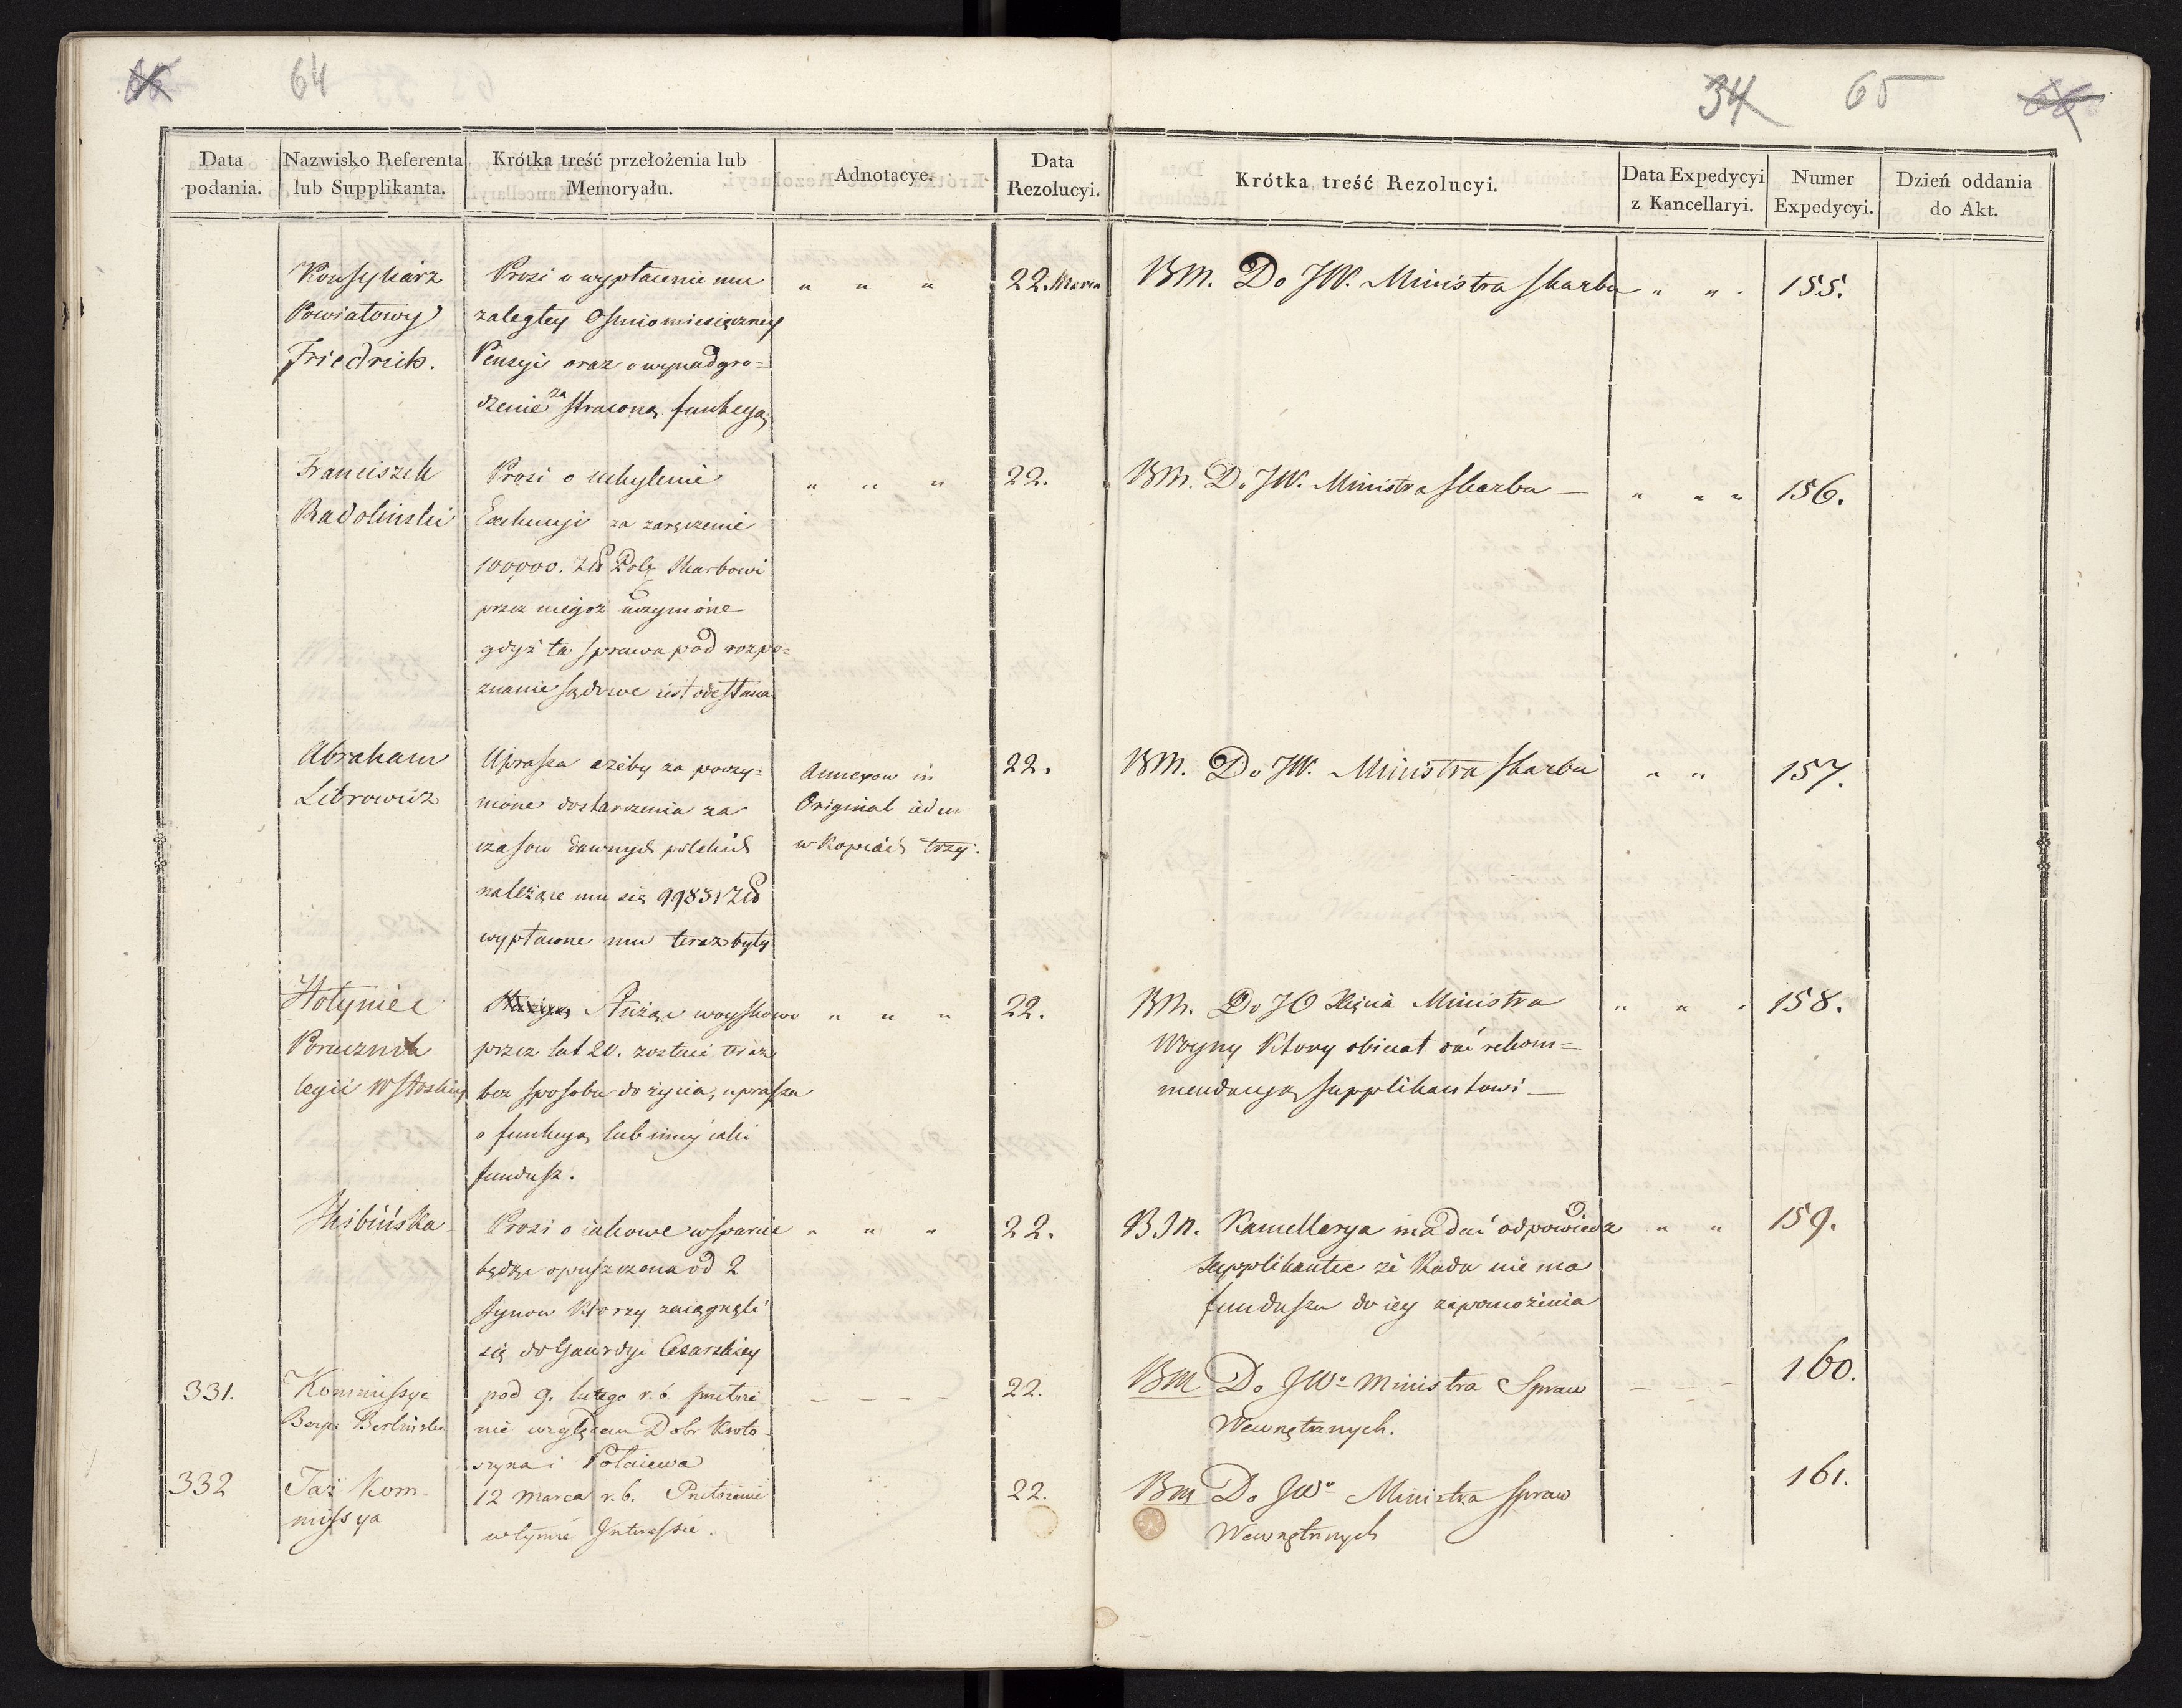 64
34
65
66
Data podania.
Nazwisko Referenta lub Supplikanta.
Krótka treść przełożenia lub Memoryału.
Adnotacye.
Data Rezolucyi.
Krótka treść Rezolucyi.
Data Expedycyi z Kancellaryi.
Numer Expedycyi.
Dzień oddania do Akt.
Konsyliarz
Powiatowy
Friedrich.
Prosi o wypłacenie mu
zaległey Osmiomiesięczney
Pensyi oraz o wynadgro=
dzenie za straconą funkcyą
" " "
22. Marca
BM. Do JW. Ministra Skarbu " " "
155.
Franciszek
Radolinski
Prosi o uchylenie
Exekucyi za zaręczenie
100,000. Zł Pols Skarbowi
przez niegoż uczynione
gdyż ta sprawa pod rozpo=
znanie sądowe iest odesłana
" " "
22.
BM. Do JW. Ministra Skarbu — " " "
156.
Abraham
Librowicz
Uprasza ażeby za poczy=
nione dostarczenia za
czasow dawnych polskich
należące mu się 99831 Zł
wypłacone mu teraz były
Annexow in
Original ieden
w Kopiach trzy.
22.
BM. Do JW. Ministra Skarbu " "
157.
Hołyniec
Porucznik
legii Włoskiey
Służąc woyskowo
przez lat 20. zostaie teraz
bez sposobu do życia, uprasza
o funkcyą lub inny iaki
fundusz.
" " "
22.
BM. Do JO Xięcia Ministra
Woyny Ktory obiecał dać rekom=
mendacyą supplikantowi —
" " "
158.
Skibińska
Prosi o iakowe wsparcie
będąc opuszczona od 2
synow Ktorzy zaciągnęli
się do Gwardyi Cesarskiey
" " "
22.
B.M. Kancellarya ma dać odpowiedz
supplikantce że Rada nie ma
funduszu do iey zapomożenia
" "
159.
331.
Kommissya
Berlinska
pod 9. lutego r. b. przełoże
nie względem Dobr Kroto
szyna i
— — — —
22.
BM Do JWo Ministra Spraw
Wewnętrznych.
— — —
160.
332
Taż Kom-
missya
12 Marca r. b. Przełożenie
w tymże Interessie.
22.
BM Do JWo Ministra Spraw
Wewnętrznych
161.